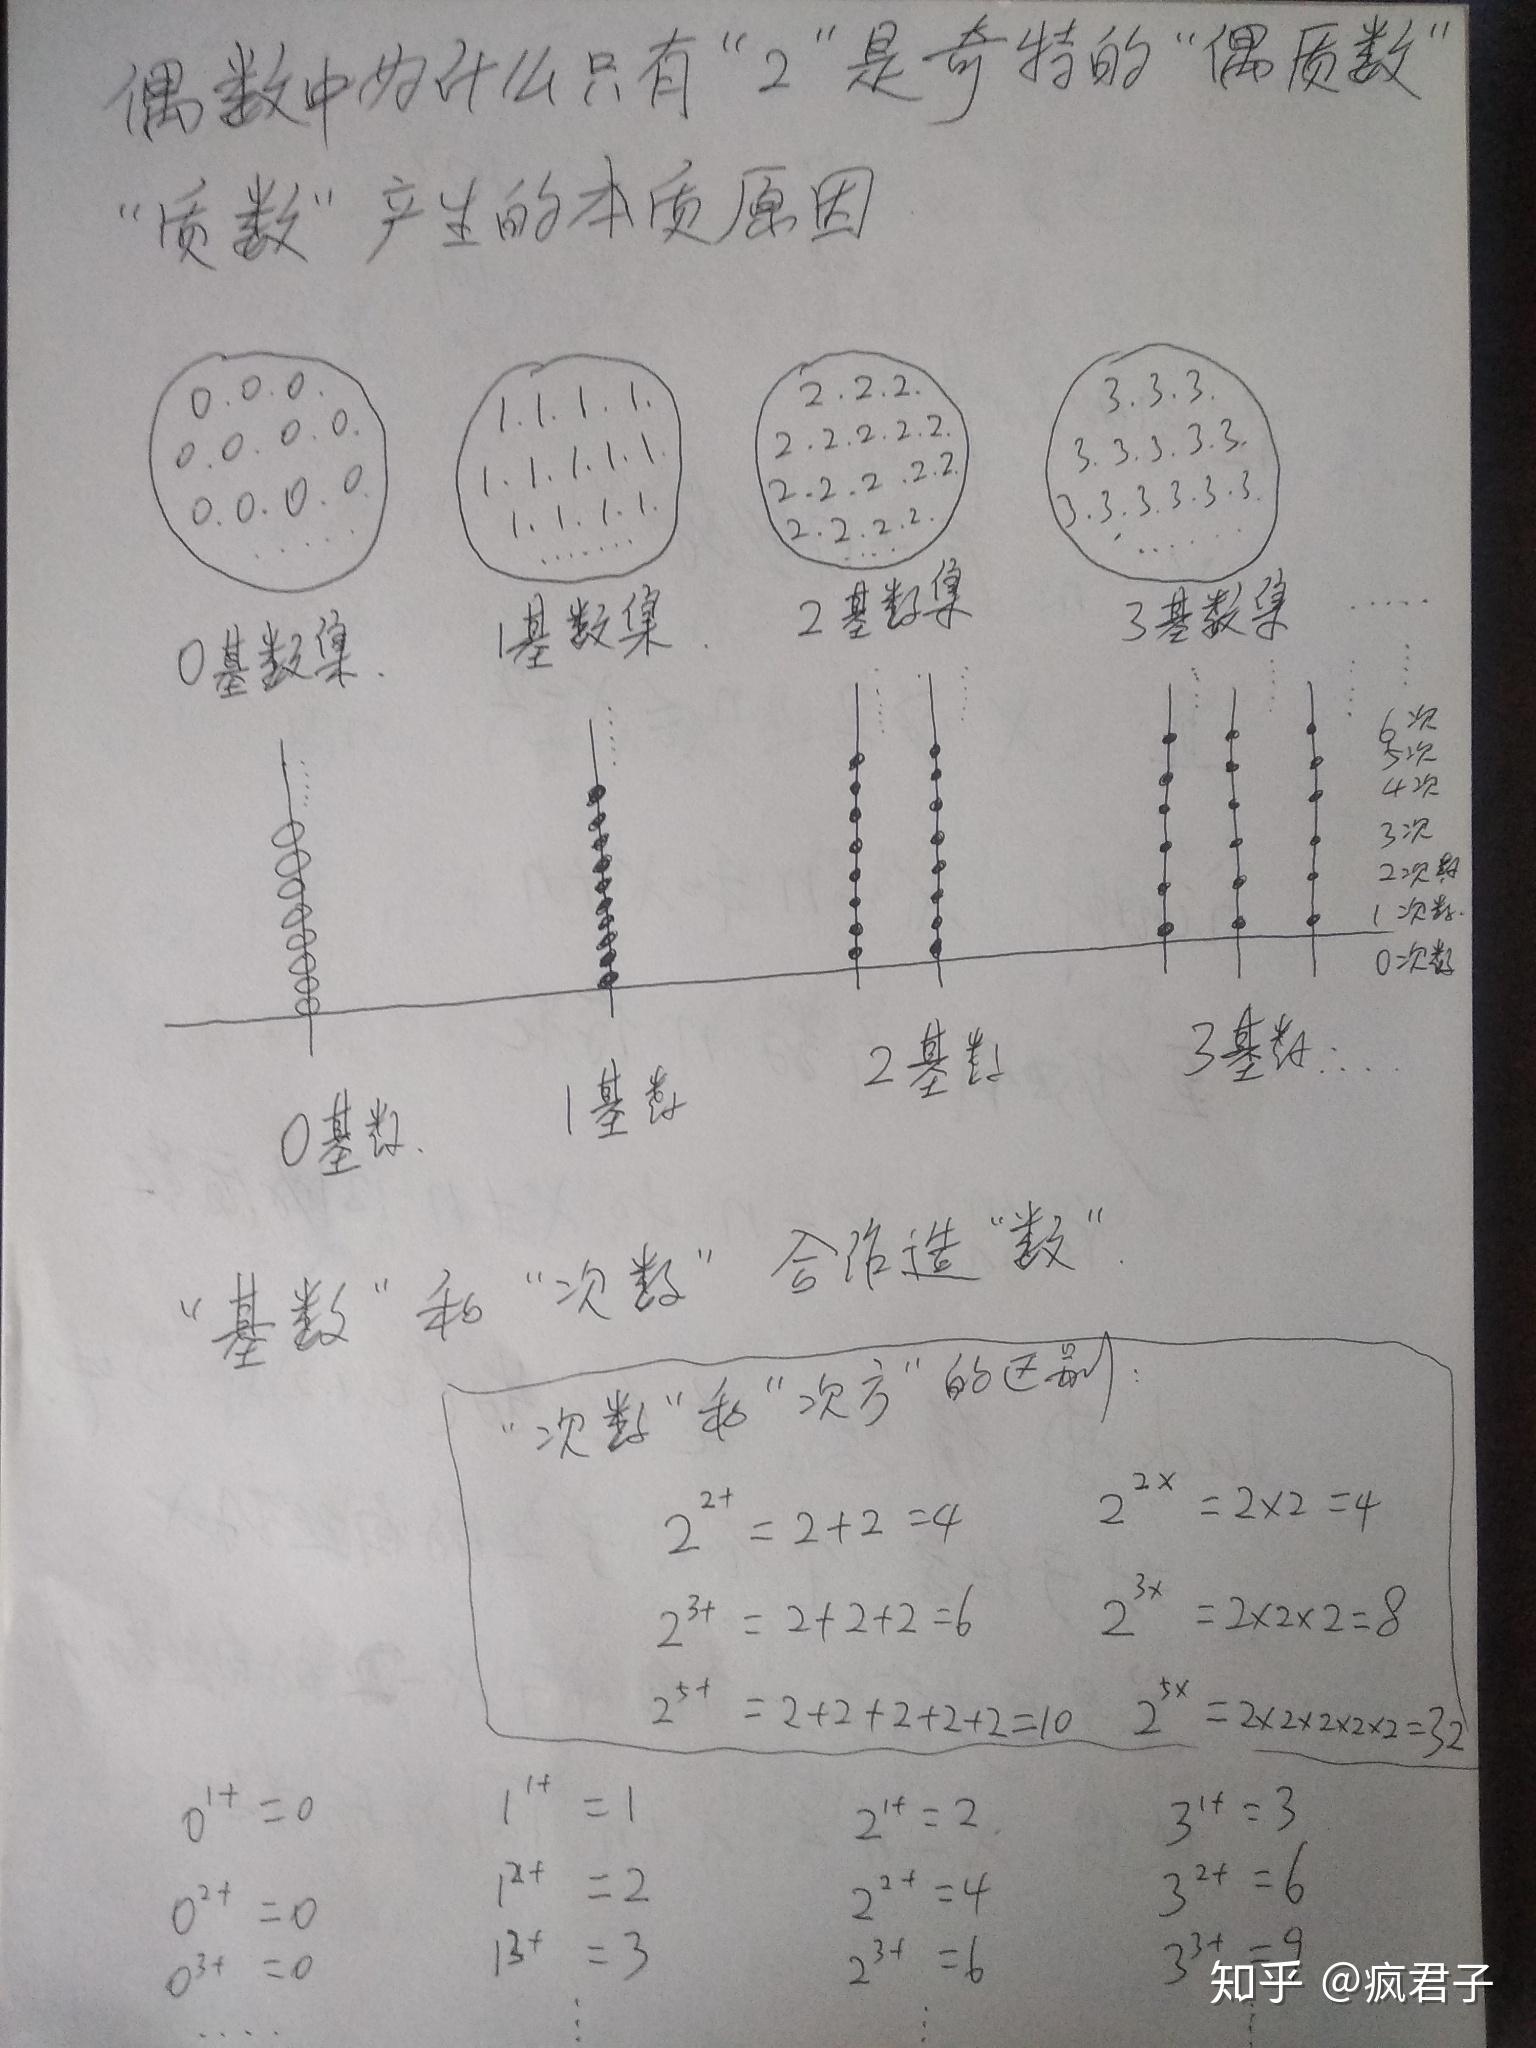 偶数中为什么只有“2”是奇特的“偶质数”
“质数”产生的本质原因
0.0.0.
0.0.0.0.
0.0.0.0.
......
1.1.1.1.
1.1.1.1.1.
1.1.1.1.
.......
2.2.2.
2.2.2.2.2.
2.2.2.2.2.
2.2.2.2.
....
3.3.3.
3.3.3.3.3.
3.3.3.3.3.3.
.......
0基数集.
1基数集.
2基数集
3基数集
......
6次
5次
4次
3次
2次数
1次数.
0次数
0基数.
1基数
2基数
3基数.....
“基数”和“次数”合作造“数”.
“次数”和“次方”的区别:
2²⁺=2+2=4
2²ˣ=2×2=4
2³⁺=2+2+2=6
2³ˣ=2×2×2=8
2⁵⁺=2+2+2+2+2=10
2⁵ˣ=2×2×2×2×2=32
0¹⁺=0
1¹⁺=1
2¹⁺=2
3¹⁺=3
0²⁺=0
1²⁺=2
2²⁺=4
3²⁺=6
0³⁺=0
1³⁺=3
2³⁺=6
3³⁺=9
....
知乎 @疯君子